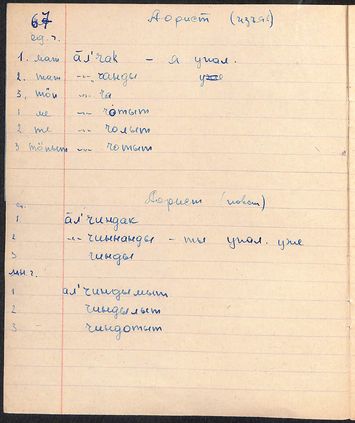 67 Аорист (изъяв)
ед. ч.
1. мат āл'чак – я упал.
2. тат –"– чанды уже
3. тӧп –"– ча
1 ме –"– чотыт
2 те –"– чолыт
3 тӧпыт –"– чотыт
Аорист (повест)
1 āл'чиндак
2 –"– чиннанды – ты упал. уже
3 чинды
мн. ч.
1 ал'чиндымыт
2 чиндылыт
3 чиндотыт